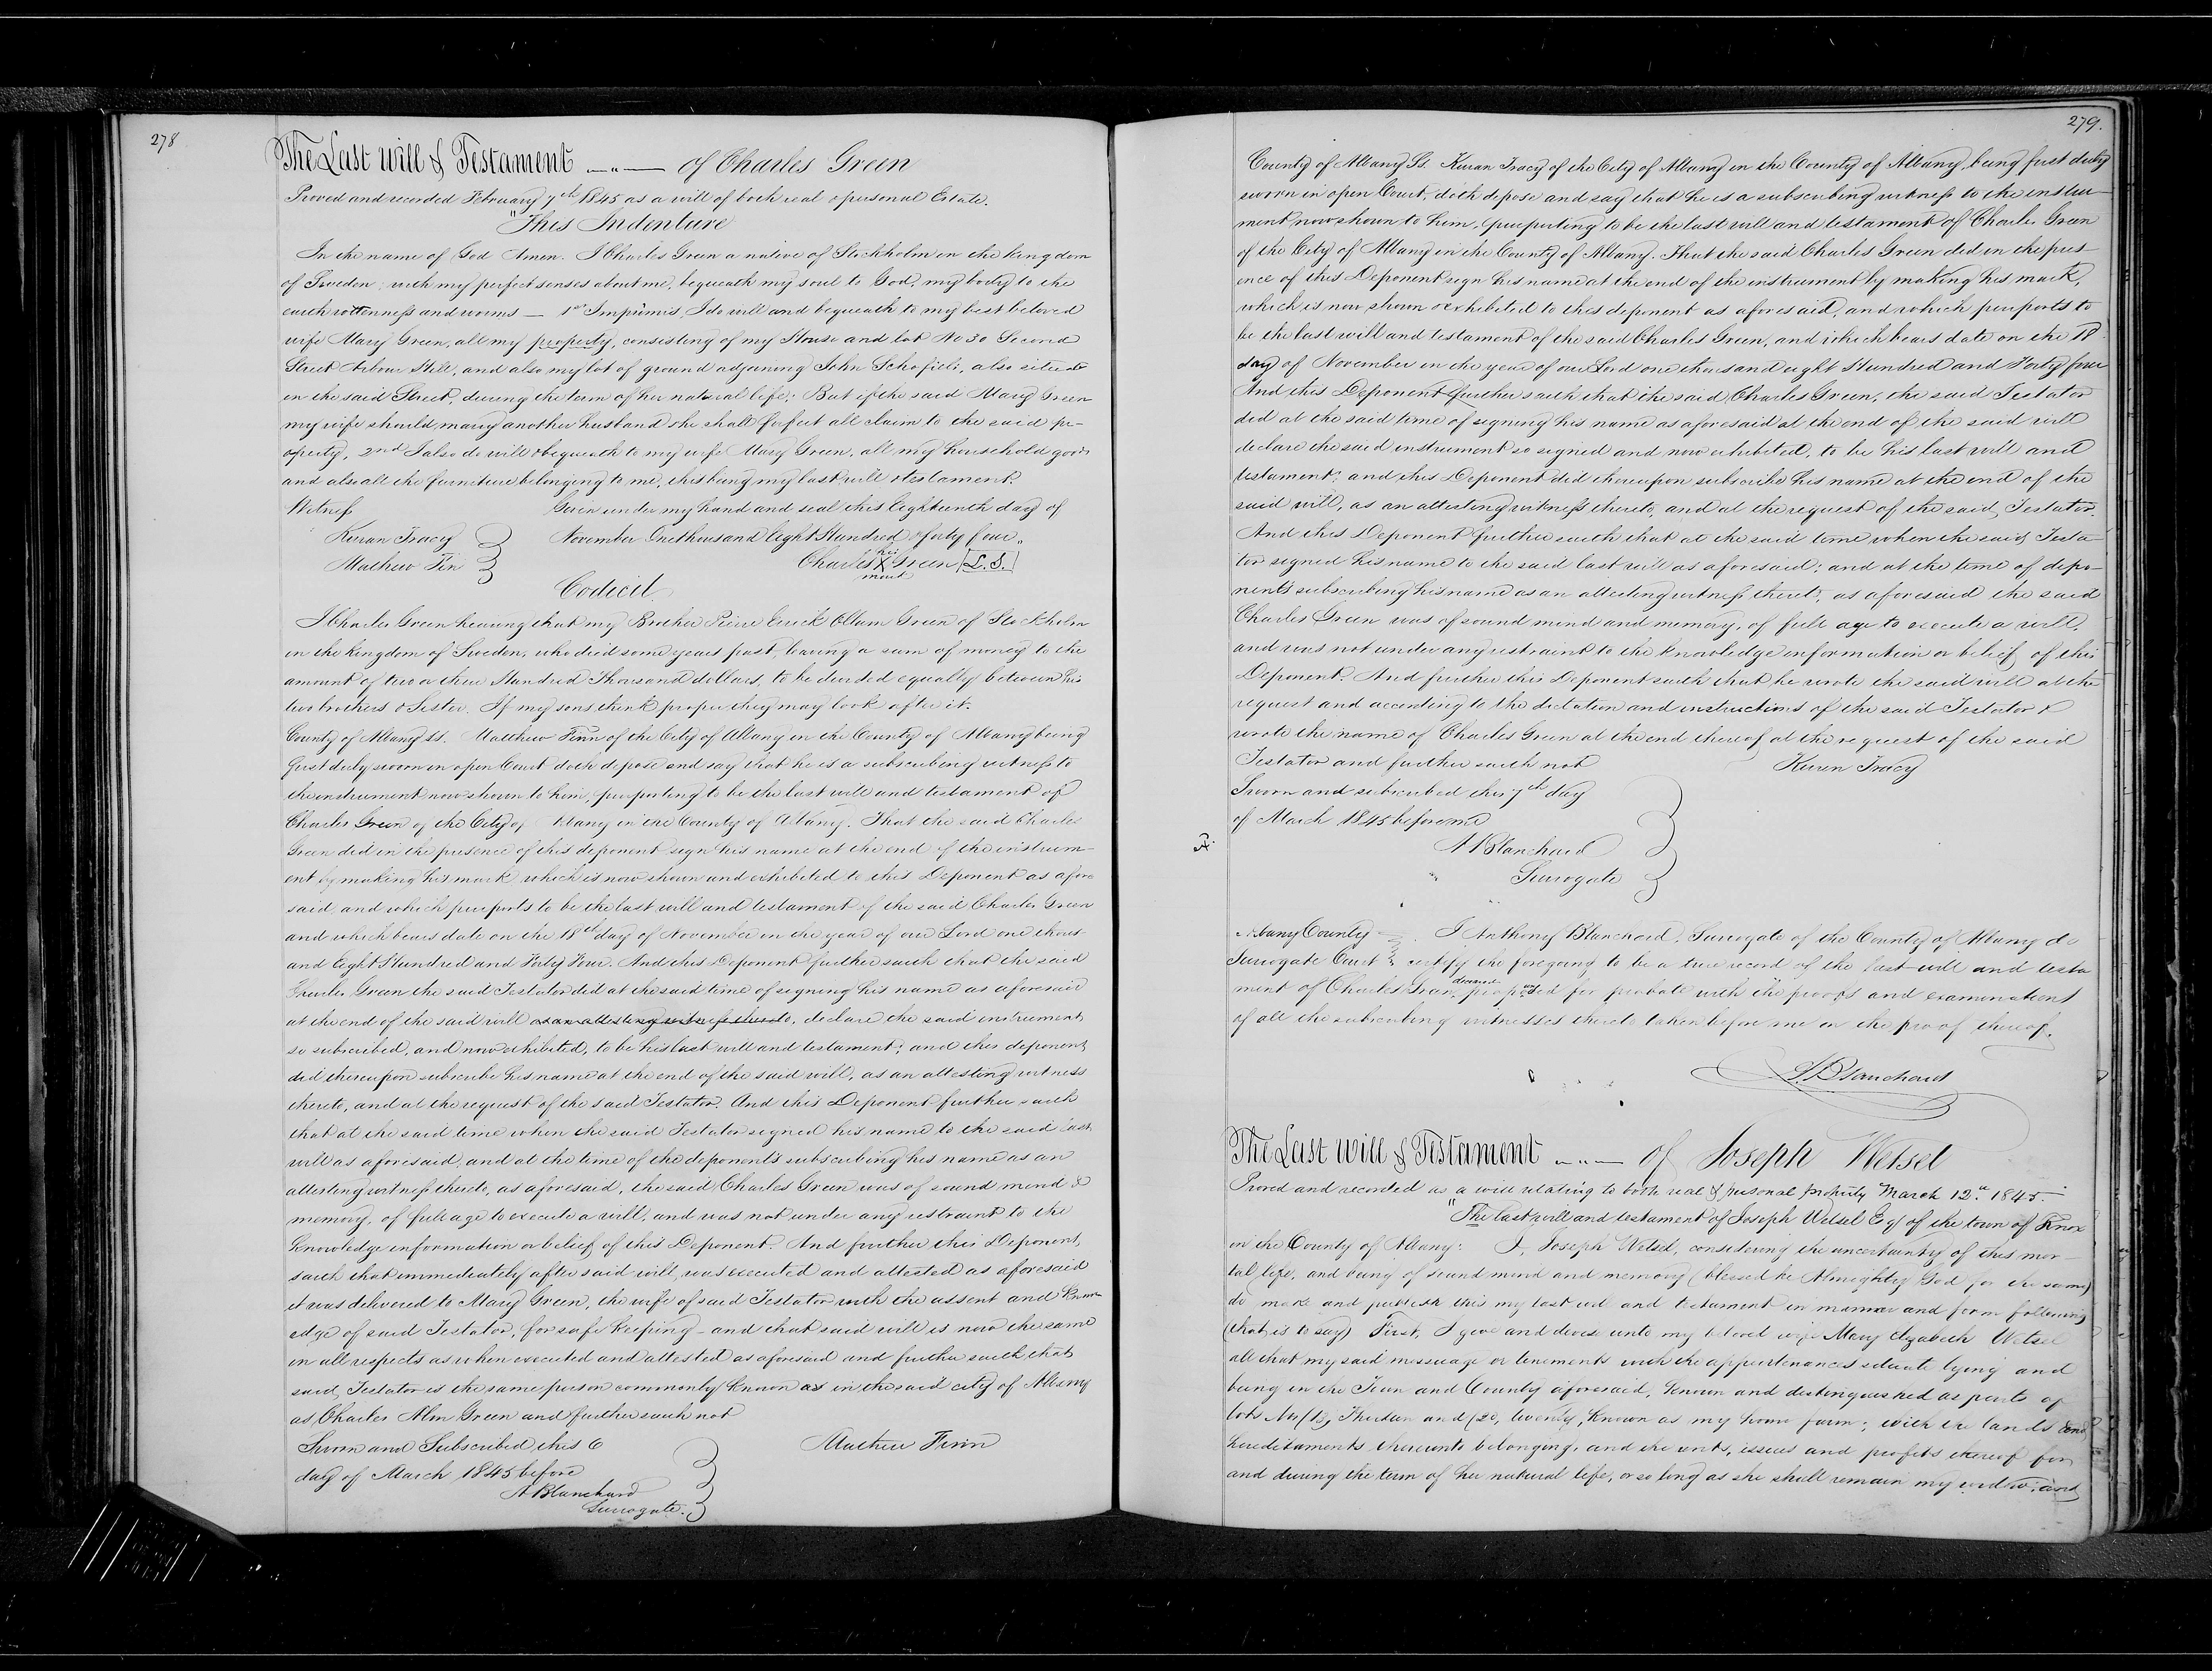 278
The Last Will & Testament —"— of Charles Green
Proved and recorded February 7th 1845 as a will of both real & personal Estate.
"This Indenture
In the name of God Amen. I Charles Green a native of Stockholm in the Kingdom
of Sweden; with my perfect senses about me, bequeath my soul to God, my body to the
earth rottenness and worms — 1st Imprimis, I do will and bequeath to my best beloved
wife Mary Green, all my property, consisting of my House and lot No 30 Second
Street Arbour Hill, and also my lot of ground adjoining John Schofield, also situate
in the said Street, during the term of her natural life; But if the said Mary Green
my wife should marry another husband she shall forfeit all claim to the said pr-
operty, 2nd I also do will & bequeath to my wife Mary Green, all my household goods
and also all the furniture belonging to me, this being my last will & testament.
Witness Given under my hand and seal this Eighteenth day of
Kieran Tracy November One thousand Eight Hundred & forty four,,
Mathew Fin Charles his X mark Green [L.S.]
Codicil.
I Charles Green hearing that my Brother Pierre Errick Green of Stockholm
in the Kingdom of Sweden, who died some years past, leaving a sum of money to the
amount of two or three Hundred Thousand dollars, to be divided equally between his
two brothers & Sister. If my sons think proper they may look after it.
County of Albany ss. Matthew Finn of the City of Albany in the County of Albany being
first duly sworn in open Court doth depose and say that he is a subscribing witness to
the instrument now shown to him, purporting to be the last will and testament of
Charles Green of the City of Albany in the County of Albany. That the said Charles
Green did in the presence of this deponent sign his name at the end of the instrum-
ent by making his mark which is now shown and exhibited to this Deponent as afore
said, and which purports to be the last will and testament of the said Charles Green
and which bears date on the 18th day of November in the year of our Lord one thous-
and Eight Hundred and Forty Four. And this Deponent further saith that the said
Charles Green the said Testator did at the said time of signing his name as aforesaid
at the end of the said will as an attesting witness thereto, declare the said instrument
so subscribed, and now exhibited, to be his last will and testament; and this deponent
did thereupon subscribe his name at the end of the said will, as an attesting witness
thereto, and at the request of the said Testator. And this Deponent further saith
that at the said time when the said Testator signed his name to the said last
will as aforesaid, and at the time of the deponent's subscribing his name as an
attesting witness thereto, as aforesaid, the said Charles Green was of sound mind &
memory, of full age to execute a will, and was not under any restraint to the
Knowledge information or belief of this Deponent. And further this Deponent
saith that immediately after said will was executed and attested as aforesaid
it was delivered to Mary Green, the wife of said Testator with the assent and Know
edge of said Testator, for safe Keeping – and that said will is now the same
in all respects as when executed and attested as aforesaid and further saith that
said Testator is the same person commonly known as in the said city of Albany
as Charles Alm Green and further saith not
Sworn and Subscribed this 6 Mathew Finn
day of March 1845 before
A Blanchard
Surrogate.
279.
County of Albany Ss. Kieran Tracy of the City of Albany in the County of Albany, being first duly
sworn in open Court, doth depose and say that he is a subscribing witness to the instru-
ment now shown to him, purporting to be the last will and testament of Charles Green
of the City of Albany in the County of Albany. That the said Charles Green did in the pres-
ence of this Deponent sign his name at the end of the instrument by making his mark,
which is now shown & exhibited to this deponent as aforesaid, and which purports to
be the last will and testament of the said Charles Green, and which bears date on the 18
day of November in the year of our Lord one thousand eight Hundred and Forty four
And this Deponent further saith that the said Charles Green, the said Testator
did at the said time of signing his name as aforesaid at the end of the said will
declare the said instrument so signed and now exhibited, to be his last will and
testament; and this Deponent did thereupon subscribe his name at the end of the
said will, as an attesting witness thereto, and at the request of the said Testator.
And this Deponent further saith that at the said time when the said Testa-
tor signed his name to the said last will as aforesaid; and at the time of depo-
nent's subscribing his name as an attesting witness thereto, as aforesaid the said
Charles Green was of sound mind and memory, of full age to execute a will,
and was not under any restraint to the knowledge information or belief of this
Deponent. And further this Deponent saith that he wrote the said will at the
request and according to the dictation and instructions of the said Testator &
wrote the name of Charles Green at the end thereof at the request of the said
Testator and further saith not Kieran Tracy
Sworn and subscribed this 7th day
of March 1845 before me
A Blanchard
Surrogate
Albany County I Anthony Blanchard, Surrogate of the County of Albany do
Surrogate Court certify the foregoing to be a true record of the last will and testa
ment of Charles Green deceased propounded for probate with the proofs and examinations
of all the subscribing witnesses thereto taken before me on the proof thereof.
A. Blanchard
The Last Will & Testament —"— of Joseph Wetsel
Proved and recorded as a will relating to both real & personal property March 12th 1845.—
"The last will and testament of Joseph Wetsel Esq of the town of Knox
in the County of Albany: I, Joseph Wetsel, considering the uncertainty of this mor-
tal life, and being of sound mind and memory (blessed be Almighty God for the same)
do make and publish this my last will and testament in manner and form following
(that is to say) First, I give and devise unto my beloved wife Mary Elizabeth Wetsel
all that my said messuage or tenements with the appurtenances situate lying and
being in the Town and County aforesaid, known and distinguished as parts of
lots No (13) Thirteen and (20, twenty, known as my home farm; with the lands and
hereditaments thereunto belonging, and the rents, issues and profits thereof for
and during the term of her natural life, or so long as she shall remain my widow; and